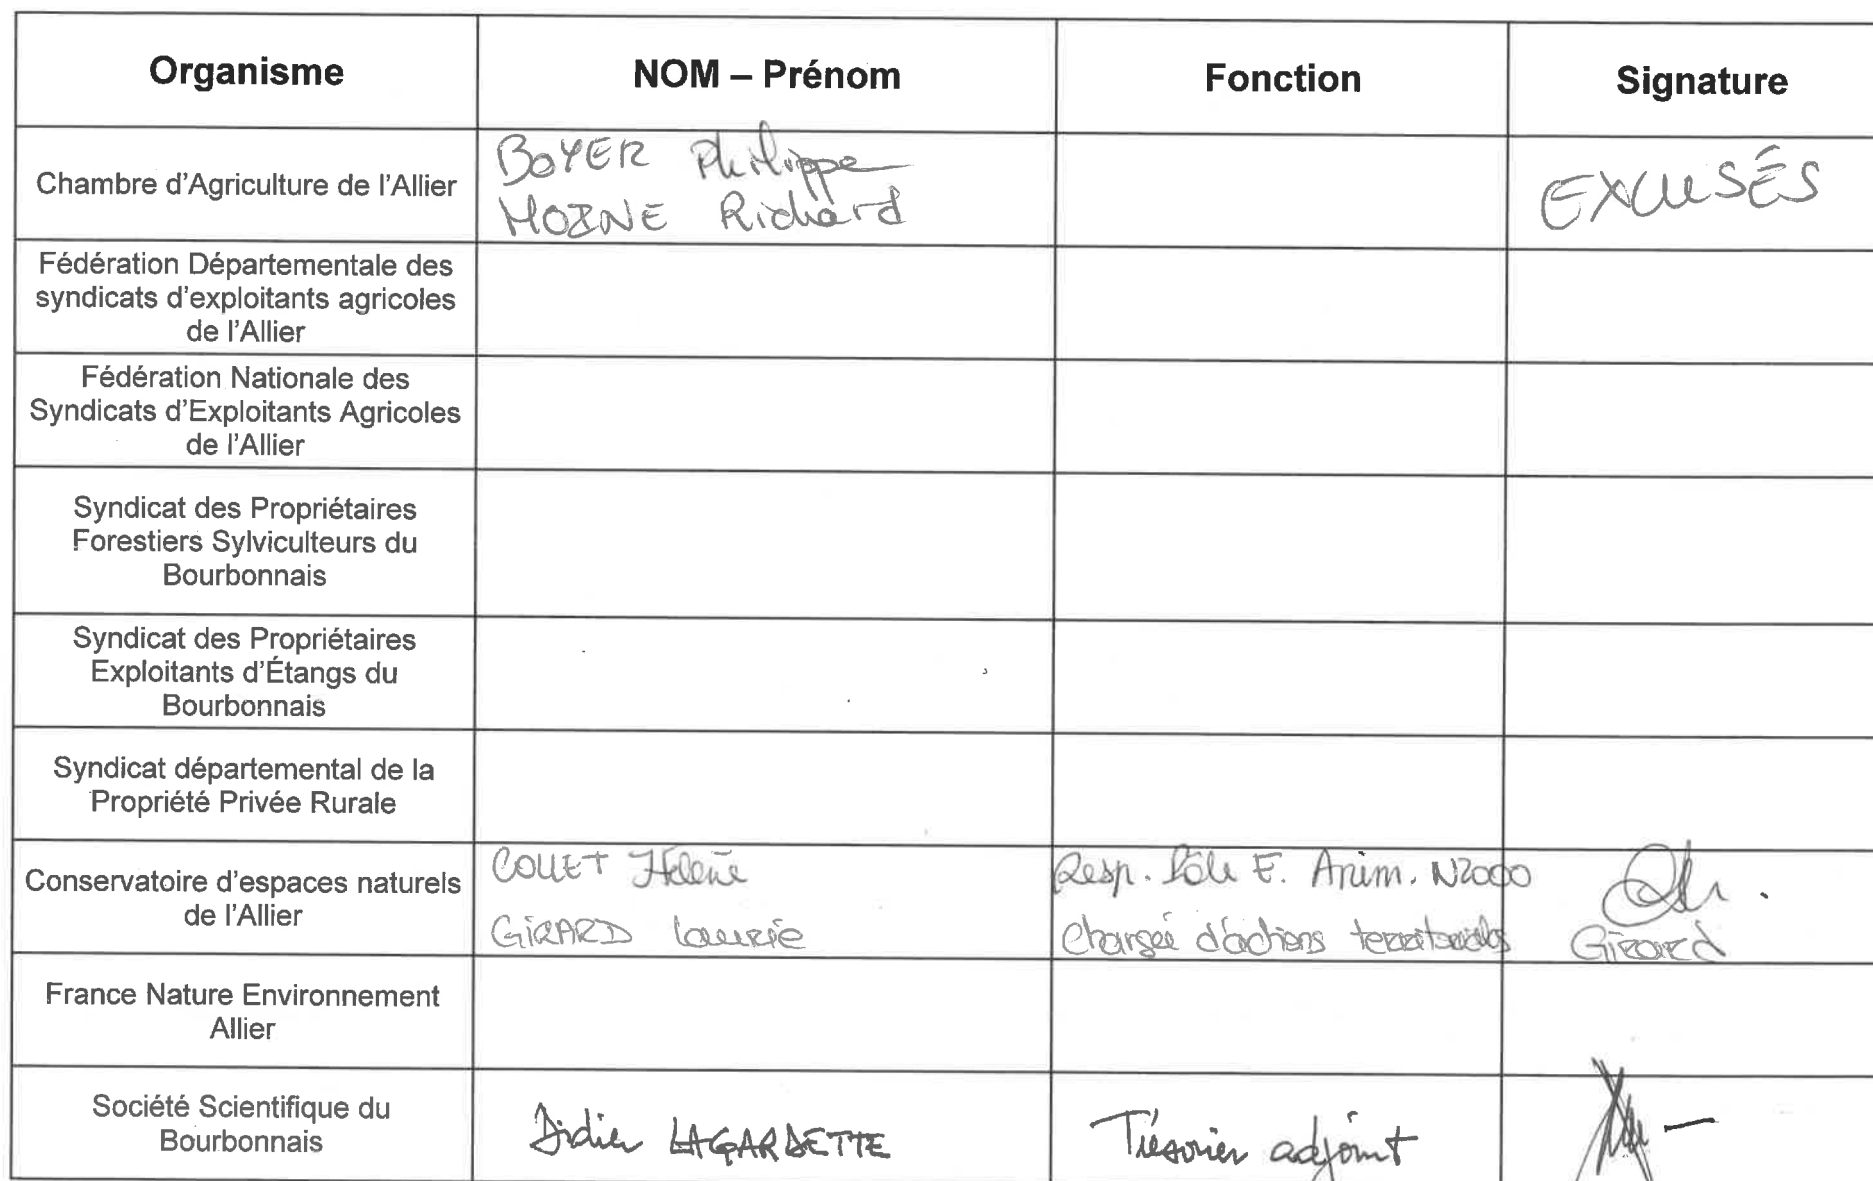 Organisme NOM – Prénom Fonction Signature
Chambre d'Agriculture de l'Allier
BOYER Philippe
MOINE Richard
EXCUSÉS
Fédération Départementale des
syndicats d'exploitants agricoles
de l'Allier
Fédération Nationale des
Syndicats d'Exploitants Agricoles
de l'Allier
Syndicat des Propriétaires
Forestiers Sylviculteurs du
Bourbonnais
Syndicat des Propriétaires
Exploitants d'Étangs du
Bourbonnais
Syndicat départemental de la
Propriété Privée Rurale
Conservatoire d'espaces naturels
de l'Allier
COLLET Hélène
Resp. Pôle E. Anim. N2000
GIRARD Laurie
Chargée d'actions territoriales
Girard
France Nature Environnement
Allier
Société Scientifique du
Bourbonnais
Didier LAGARDETTE
Trésorier adjoint